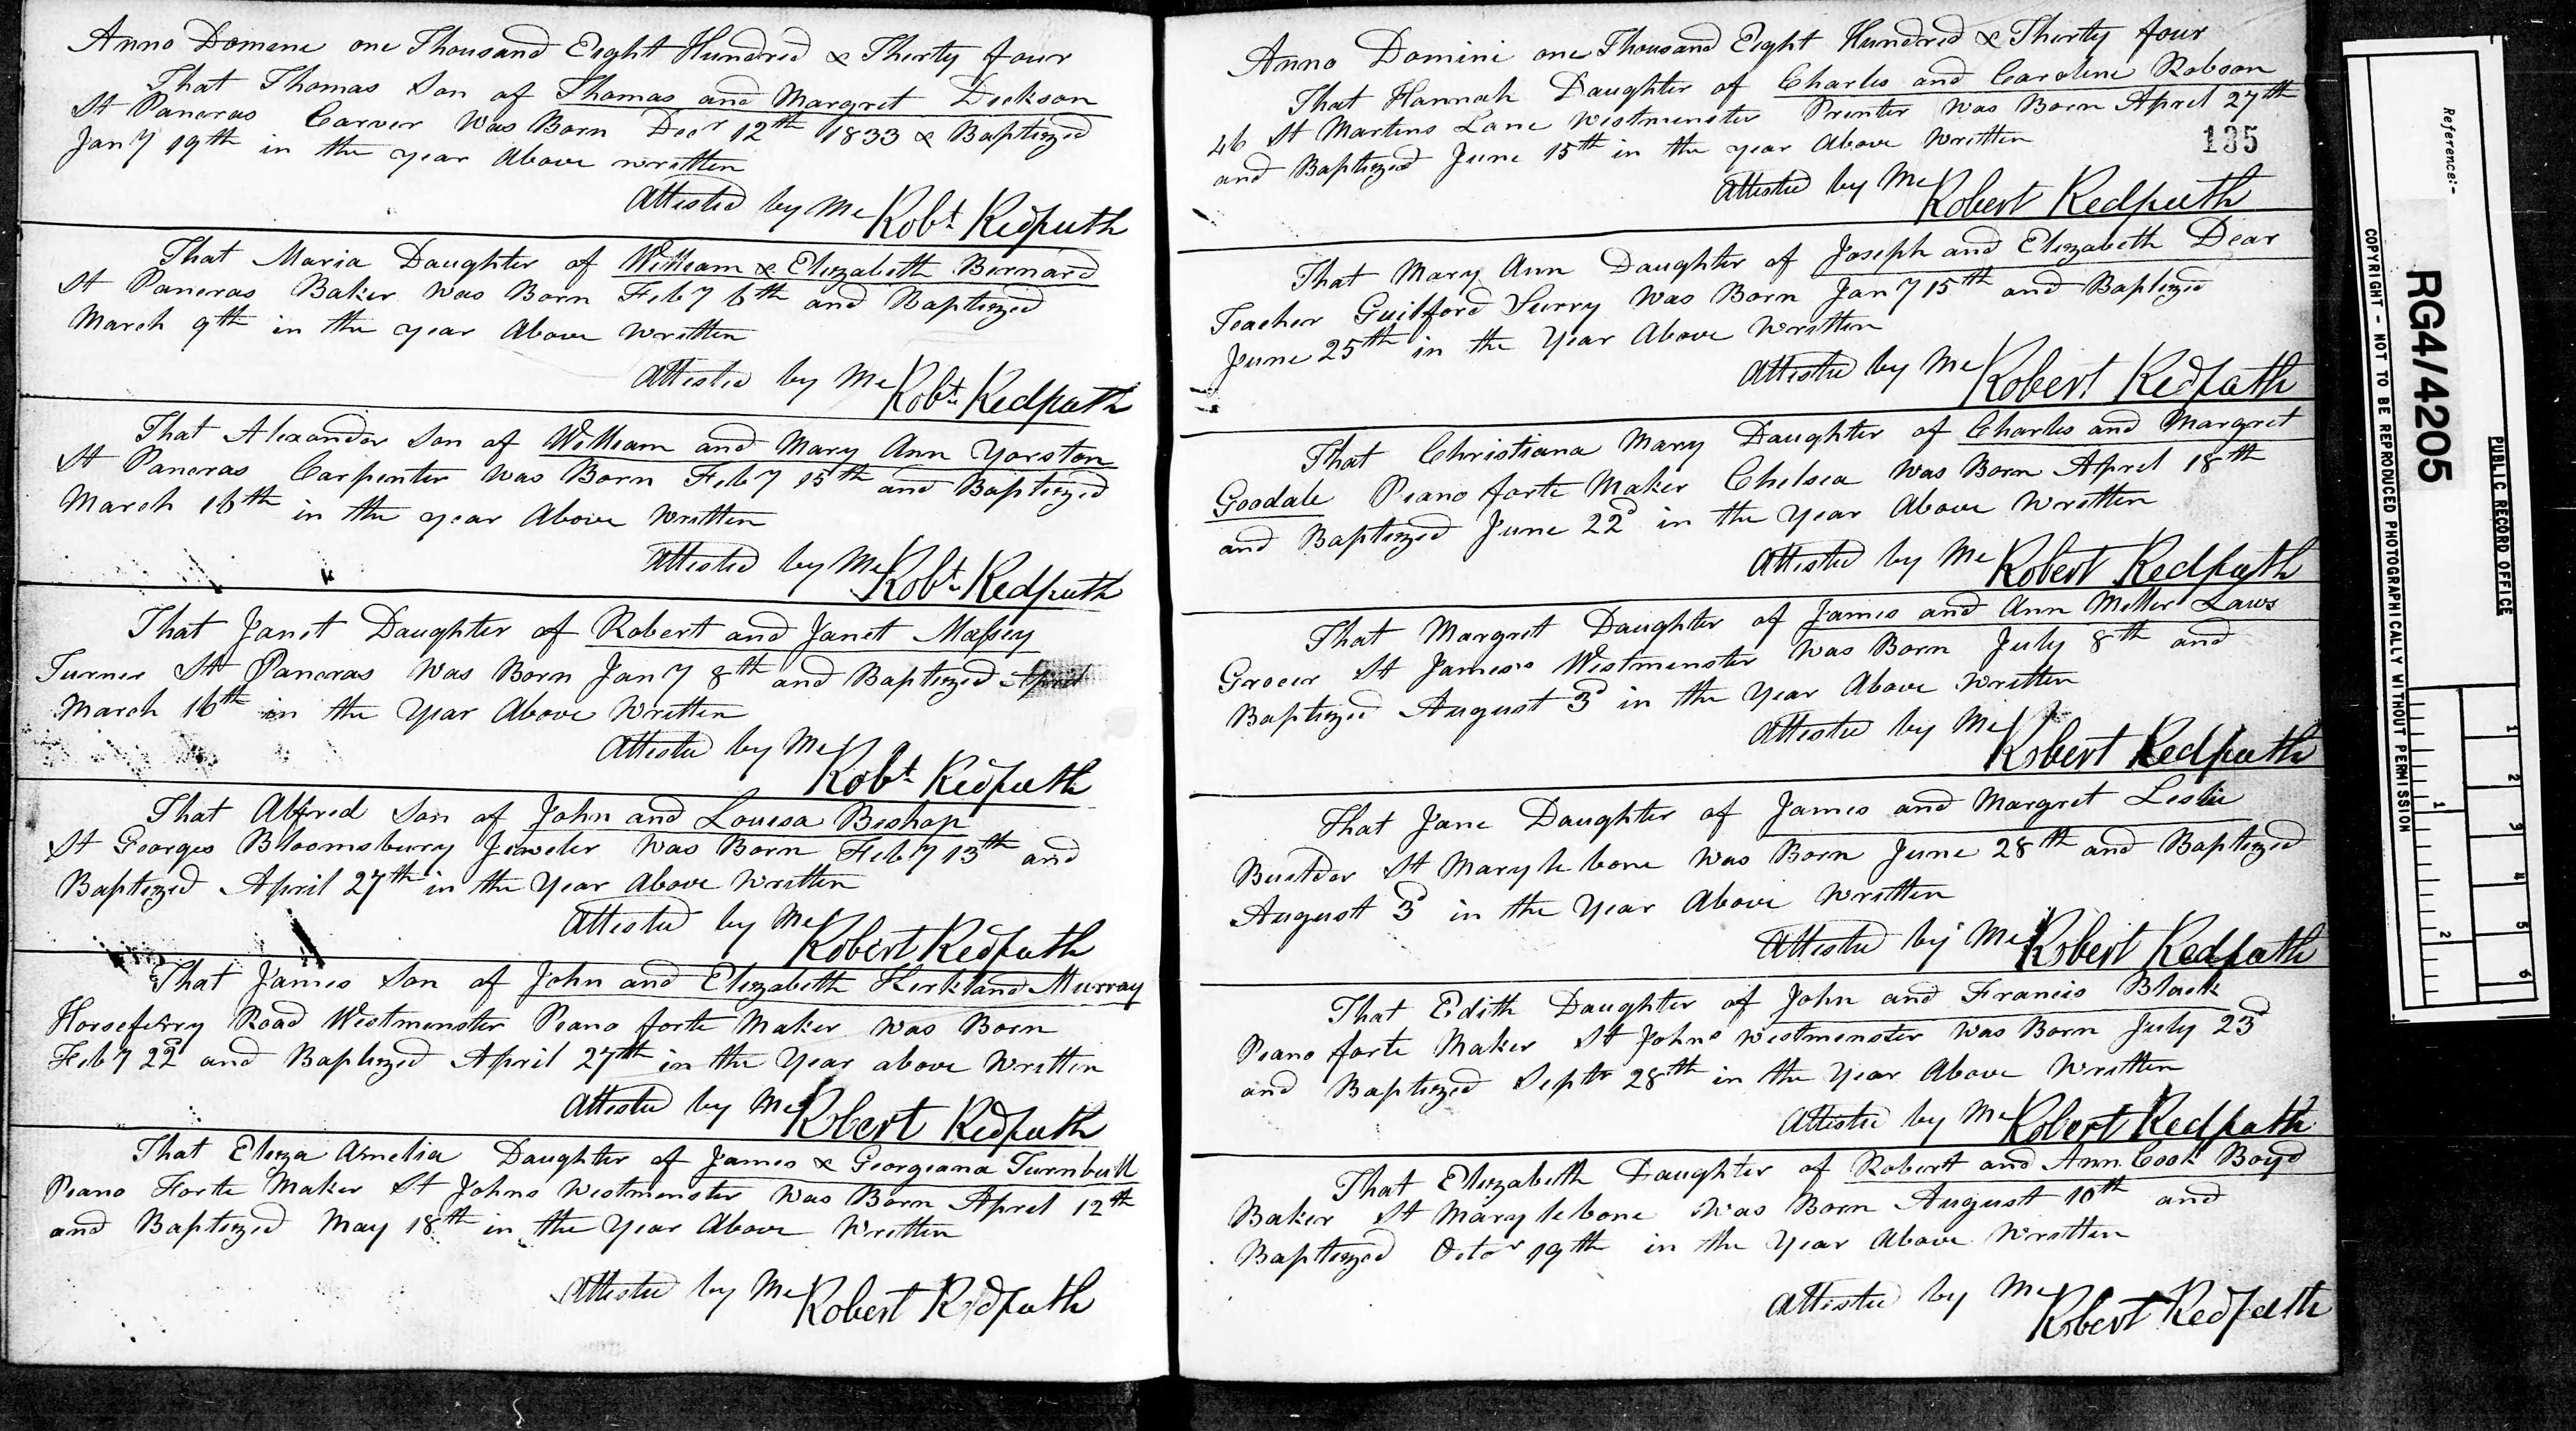 Anno Domene one Thousand Eight Hundred & Thirty four
That Thomas Son of Thomas and Margret Dickson
St Pancras Carver Was Born Decr 12th 1833 & Baptized
Jany 19th in the year Above written
Attested by Me Robt Redpath
That Maria Daughter of William & Elizabeth Bernard
St Pancras Baker Was Born Feby 6th and Baptized
March 9th in the year Above Written
Attested by Me Robt Redpath
That Alexander Son of William and Mary Ann Yorston
St Pancras Carpenter Was Born Feby 15th and Baptized
March 16th in the year Above Written
Attested by Me Robt Redpath
That Janet Daughter of Robert and Janet Massey
Turner St Pancras Was Born Jany 8th and Baptized April
March 16th in the Year Above Written
Attested by Me
Robt Redpath
That Alfred Son of John and Louisa Bishop
St Georges Bloomsburry Jeweler Was Born Feby 13th and
Baptized April 27th in the Year Above Written
Attested by Me
Robert Redpath
That James Son of John and Elizabeth Kirkland Murray
Horseferry Road Westminster Piano forte Maker Was Born
Feby 22d and Baptized April 27th in the Year above Written
Attested by Me Robert Redpath
That Eliza Amelia Daughter of James & Georgeana Turnbull
Piano Forte Maker St Johns Westminster Was Born April 12th
and Baptized May 18th in the Year Above Written
Attested by Me Robert Redpath
Anno Domini one Thousand Eight Hundred & Thirty four
That Hannah Daughter of Charles and Caroline Robson
46 St Martins Lane Westminster Printer Was Born April 27th
and Baptized June 15th in the year Above Written
135
Attested by Me Robert Redpath
That Mary Ann Daughter of Joseph and Elizabeth Dear
Teacher Guilford Surry Was Born Jany 15th and Baptized
June 25th in the Year Above Written
Attested by Me Robert Redpath
That Christiana Mary Daughter of Charles and Margret
Goodale Piano forte Maker Chelsea Was Born April 18th
and Baptized June 22d in the Year Above Written
Attested by Me Robert Redpath
That Margret Daughter of James and Ann Miller Laws
Grocer St James's Westminster Was Born July 8th and
Baptized August 3d in the Year Above Written
Attested by Me
Robert Redpath
That Jane Daughter of James and Margret Leslie
Builder St Mary le bone Was Born June 28th and Baptized
August 3d in the Year Above Written
Attested by Me Robert Redpath
That Edith Daughter of John and Francis Black
Piano forte Maker St Johns Westminster Was Born July 23d
and Baptized Septr 28th in the Year Above Written
Attested by Me Robert Redpath
That Elizabeth Daughter of Robert and Ann Cook Boyd
Baker St Mary le bone Was Born August 10th and
Baptized Octor 19th in the Year Above Written
Attested by Me
Robert Redpath
PUBLIC RECORD OFFICE
1 2 3 4 5 6
1 2
Reference:-
RG4/4205
COPYRIGHT - NOT TO BE REPRODUCED PHOTOGRAPHICALLY WITHOUT PERMISSION